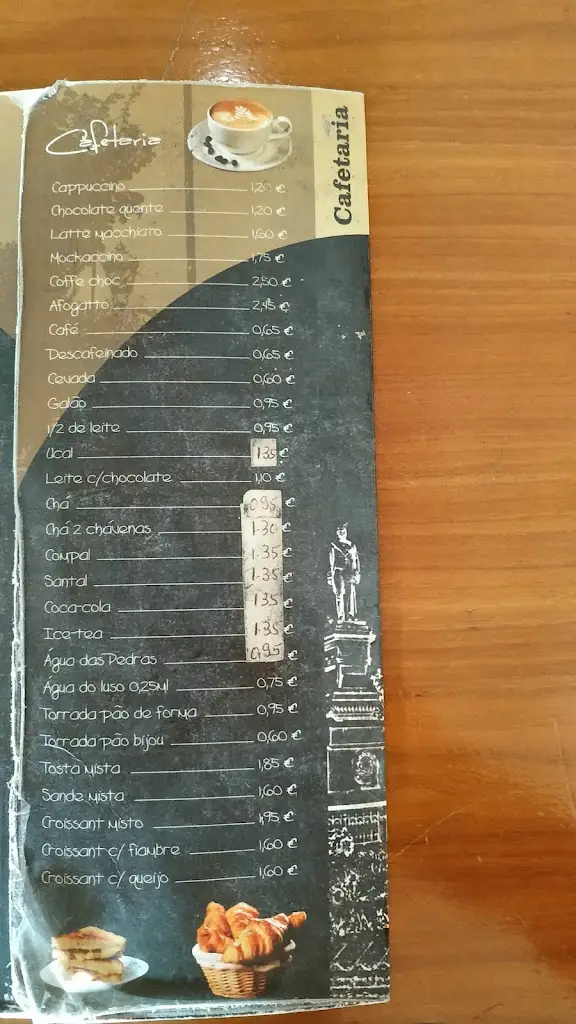 Cafetaria
Cafetaria
Cappuccino 1,20 €
Chocolate quente 1,20 €
Latte Macchiato 1,60 €
Mockaccino 1,75 €
Coffe choc 2,50 €
Afogatto 2,45 €
Café 0,65 €
Descafeinado 0,65 €
Cevada 0,60 €
Galão 0,95 €
1/2 de leite 0,95 €
Ucal 1.35 €
Leite c/chocolate 1,10 €
Chá 0.95 €
Chá 2 chávenas 1.30 €
Compal 1.35 €
Santal 1.35 €
Coca-cola 1.35 €
Ice-tea 1.35 €
Água das Pedras 0,95 €
Água do luso 0,25Ml 0,75 €
Torrada pão de forma 0,95 €
Torrada pão bijou 0,60 €
Tosta Mista 1,85 €
Sande Mista 1,60 €
Croissant Misto 1,95 €
Croissant c/ fiambre 1,60 €
Croissant c/ queijo 1,60 €